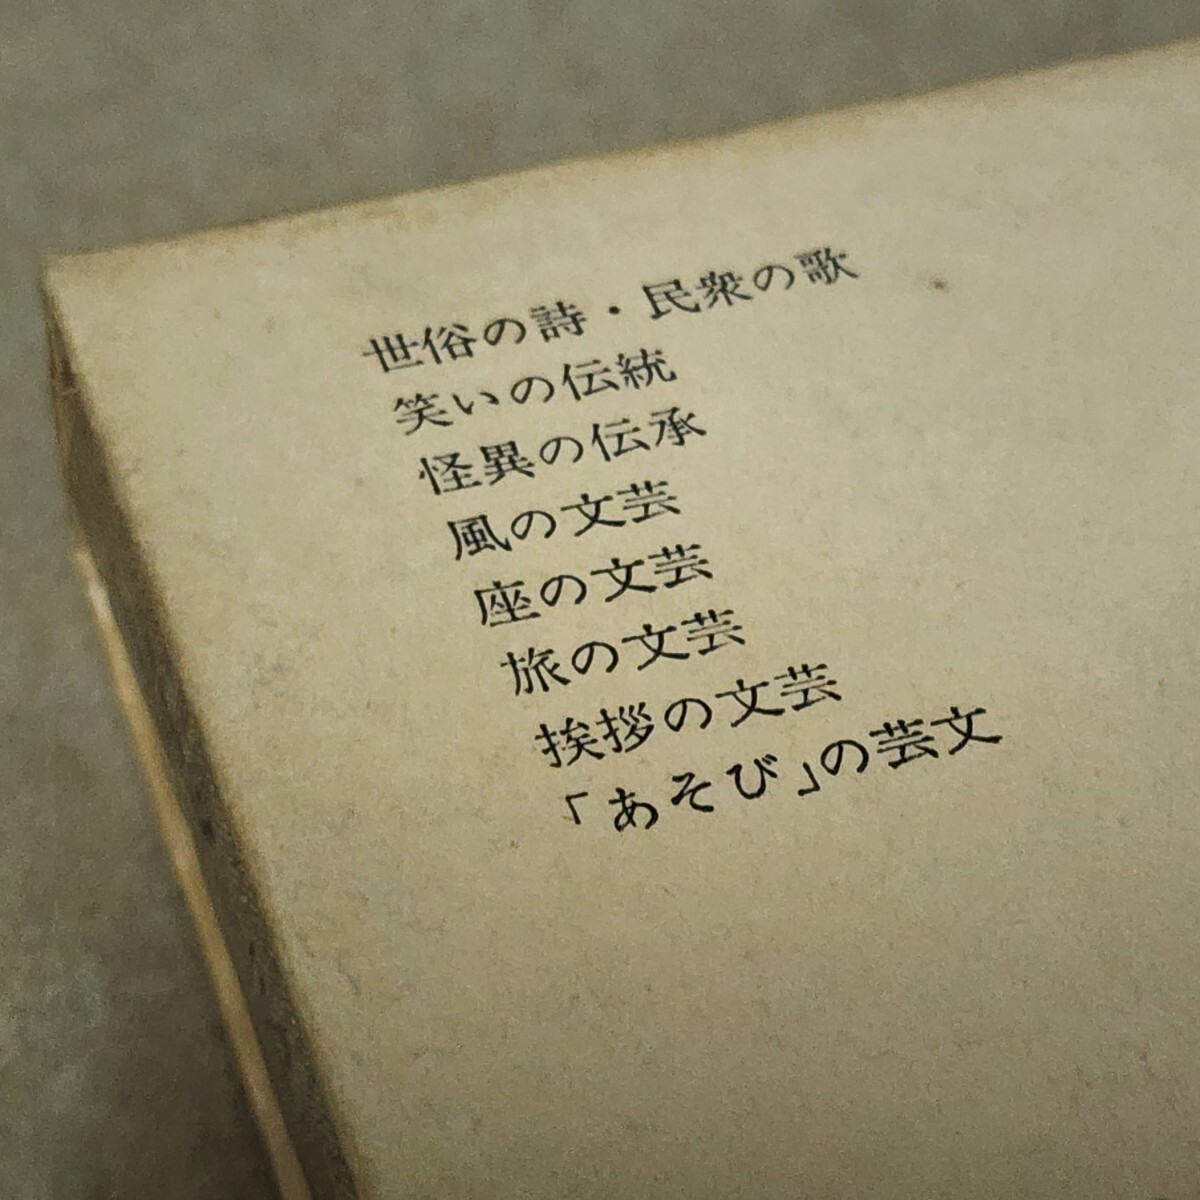 世俗の詩・民衆の歌
笑いの伝統
怪異の伝承
風の文芸
座の文芸
旅の文芸
挨拶の文芸
「あそび」の芸文